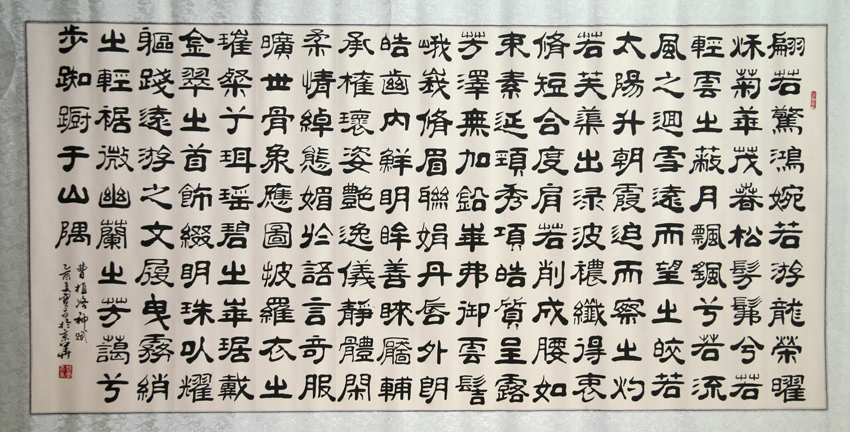 翩若驚鴻婉若游龍榮曜
秋菊華茂春松髣髴兮若
輕雲之蔽月飄飖兮若流
風之迴雪遠而望之皎若
太陽升朝霞迫而察之灼
若芙蕖出淥波穠纖得衷
脩短合度肩若削成腰如
束素延頸秀項皓質呈露
芳澤無加鉛華弗御雲髻
峨峩脩眉聯娟丹唇外朗
皓齒內鮮明眸善睞靨輔
承權瓌姿艷逸儀靜體閑
柔情綽態媚於語言奇服
曠世骨象應圖披羅衣之
璀粲兮珥瑤碧之華琚戴
金翠之首飾綴明珠以耀
軀踐遠游之文履曳霧綃
之輕裾微幽蘭之芳藹兮
步踟躕于山隅
曹植洛神賦
於京華